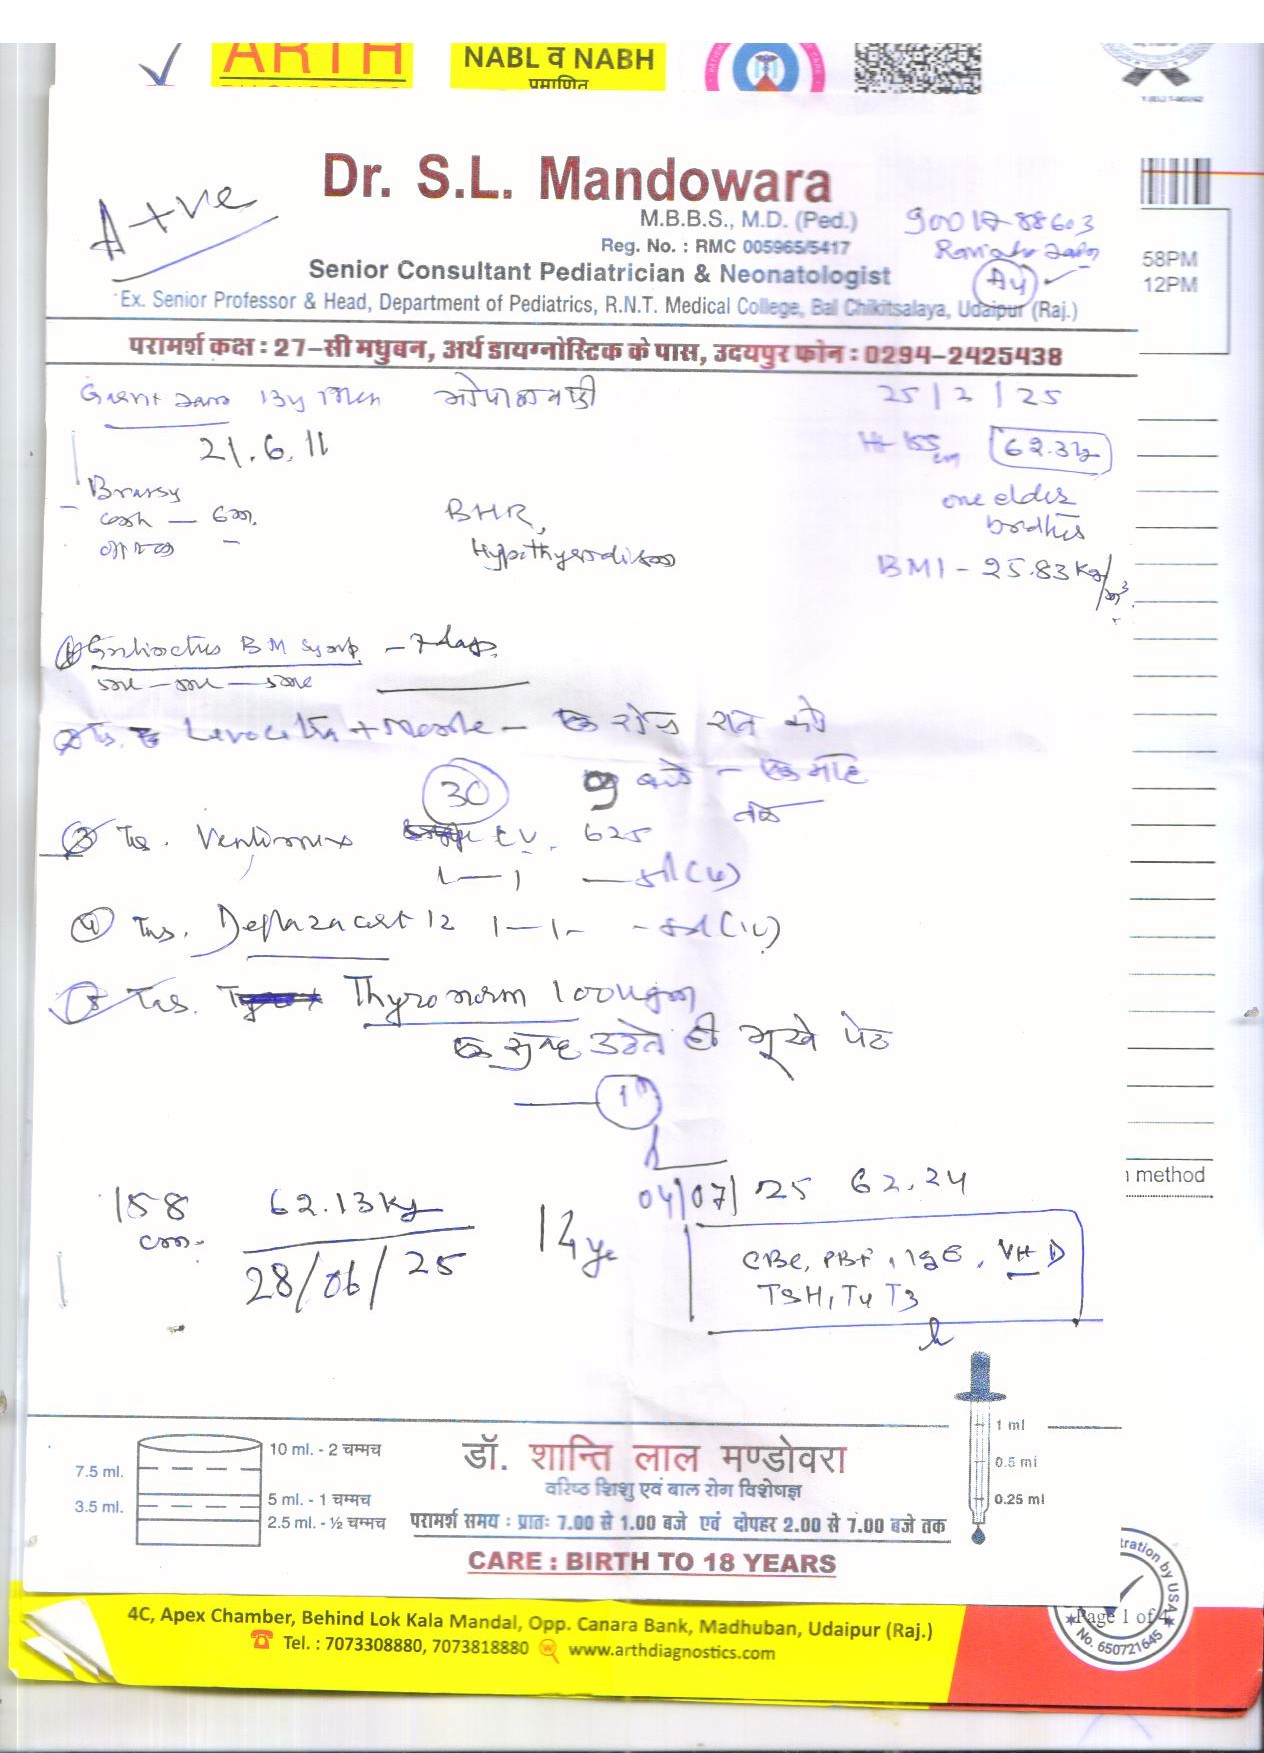 ARTH
NABL व NABH
प्रमाणित
A+ve
Dr. S.L. Mandowara
M.B.B.S., M.D. (Ped.)
Reg. No. : RMC 005965/5417
Senior Consultant Pediatrician & Neonatologist
Ex. Senior Professor & Head, Department of Pediatrics, R.N.T. Medical College, Bal Chikitsalaya, Udaipur (Raj.)
58PM
12PM
परामर्श कक्ष : 27-सी मधुबन, अर्थ डायग्नोस्टिक के पास, उदयपुर फोन : 0294-2425438
25/2/25
21.6.11
Ht 155 cm 62.3kg
one elder
brother
BHR,
Hypothyroidism
BMI - 25.83 Kg/m²
BM Syrup - 7 days
Levocetri + Monte - एक रोज रात को
30 9 बजे - एक माह
तक
③ Tab. CV. 625
1—1
④ Tab. Deflazacort 12 1—1-
Tab. Thyronorm 100ugm
एक सुबह उठते ही भूखे पेट
1m
158 cm 62.13kg
28/06/25
14 yr
04/07/25 62.24
CBC, PBF, IgE, Vit D
TSH, T4 T3
method
1 ml
0.5 ml
0.25 ml
10 ml. - 2 चम्मच
7.5 ml.
5 ml. - 1 चम्मच
3.5 ml.
2.5 ml. - ½ चम्मच
डॉ. शान्ति लाल मण्डोवरा
वरिष्ठ शिशु एवं बाल रोग विशेषज्ञ
परामर्श समय : प्रातः 7.00 से 1.00 बजे एवं दोपहर 2.00 से 7.00 बजे तक
CARE : BIRTH TO 18 YEARS
tration by USA
Page 1 of 4
No. 650721645
4C, Apex Chamber, Behind Lok Kala Mandal, Opp. Canara Bank, Madhuban, Udaipur (Raj.)
Tel. : 7073308880, 7073818880 www.arthdiagnostics.com